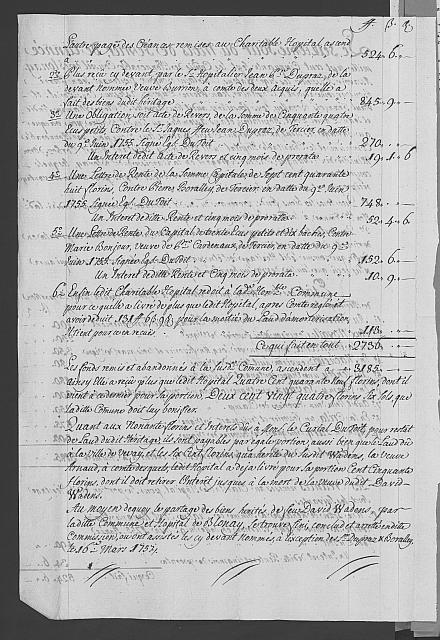 ff. ß. ₰.
L'autre page des Creances remises au Charitable Hopital ascend
à 524 „ 6 „ „
2.º Plus reçu cy devant, par le Sr. Hospitalier Jean Dupraz, de la
devant Nommée Veuve Burrin, à conte des deux acquis, quelle a
fait des biens dudit héritage 845 „ 9 „ „
3.º Une Obligation, soit acte de Revers, de la Somme de Cinquante quatre
Ecus petits, Contre le Sr. Jaques feu Jean Dupraz, de Tercier, en datte
du 9.e Juin 1755. Signée Egl. DuToit 270 „ „ „
Un Interet dedit acte de Revers et cinq mois de prorata 19 „ 1 „ 6
4.º Une Lettre de Rente de la Somme Capitale de Sept cent quarante
huit florins, Contre Pierre Boralley de Tercier en datte du 9.e Juin
1755. Signée Egl. DuToit 748 „ „ „
Un Interet dedite Rente et cinq mois de prorata 52 „ 4 „ 6
5.º Une Lettre de Rente du Capital de trente Ecus petits et dix bachez Contre
Marie Bonjour, Veuve de Cardenaux de Tercier, en datte du 9.e
Juin 1755. Signée Egl. DuToit 152 „ 6 „
Un Interet dedite Rente et Cinq mois de prorata 10 „ 9 „
6.º Enfin ledit Charitable Hopital redoit à la de. Honble. Commune
pour ce qu'elle a livré de plus que ledit Hopital, apres Conte réglé et
avoir deduit 131 ff 6 ß 9 ₰ pour la moitié du Laud d'amortisation
113 „ „ „
Ce qui fait en tout 2736 „ „ „
Les fonds remis et abandonnés à la susd. Comune, ascendent à 3185 „ „
ainsy Elle a reçu plus que ledit Hopital Quatre Cent quarante Neuf florins, dont il
vient à ce dernier pour sa portion, Deux cent vingt quatre florins Six sols que
ladite Comune doit luy bonifier.
Quant aux Nonante florins et Interets dûs à Monsr. le Curial DuToit, pour restat
de Laud dudit héritage, ils sont payables par egale portion, aussi bien que le Laud dû
à la ville de Vevay, et les Six Cent florins, qu'a herité du susdit Wadens, la Veuve
Arnaud, à conte desquels, ledit Hopital a deja livré pour sa portion Cent Cinquante
florins, dont il doit retirer l'Interet jusques à la mort de la Veuve dudit David
Wadens.
Au moyen dequoy le partage des biens herités de feu David Wadens, par
ladite Commune et Hopital de Blonay, se trouve fini, conclud et arreté en dite
Commission, ou ont assistés les cy devant Nommés, à l'exception des Srs. Dupraz & Boralley,
le 16.e Mars 1757.